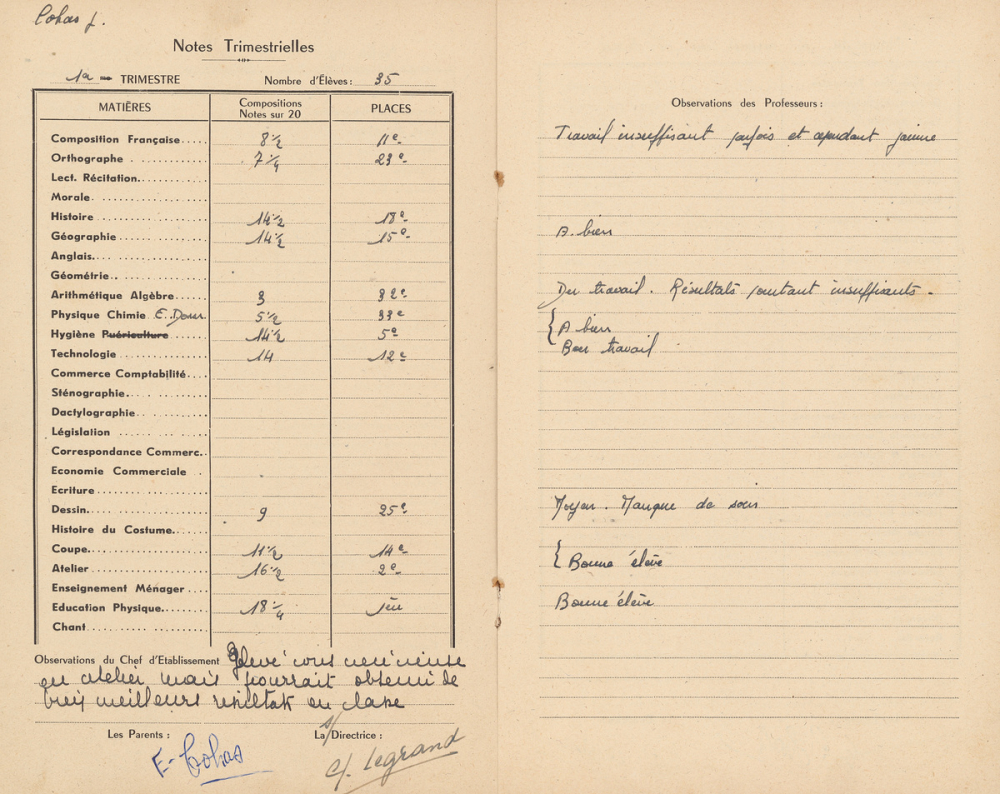 Cohas J.
Notes Trimestrielles
1er TRIMESTRE Nombre d'Élèves : 35
MATIÈRES Compositions Notes sur 20 PLACES
Composition Française 8 1/2 11e
Orthographe 7 1/4 23e
Lect. Récitation
Morale
Histoire 14 1/2 18e
Géographie 14 1/2 15e
Anglais
Géométrie
Arithmétique Algèbre 3 32e
Physique Chimie E. Dom. 5 1/2 33e
Hygiène Puériculture 14 1/2 5e
Technologie 14 12e
Commerce Comptabilité
Sténographie
Dactylographie
Législation
Correspondance Commerc.
Economie Commerciale
Ecriture
Dessin 9 25e
Histoire du Costume
Coupe 11 1/2 14e
Atelier 16 1/2 2e
Enseignement Ménager
Education Physique 18 1/4 1er
Chant
Observations du Chef d'Etablissement Elève consciencieuse
en atelier mais pourrait obtenir de
bien meilleurs résultats en classe
Les Parents : La Directrice :
E. Cohas C. Legrand
Observations des Professeurs :
Travail insuffisant parfois et cependant
A. bien
Du travail. Résultats pourtant insuffisants.
A bien
Bon travail
Moyen. Manque de soin
Bonne élève
Bonne élève